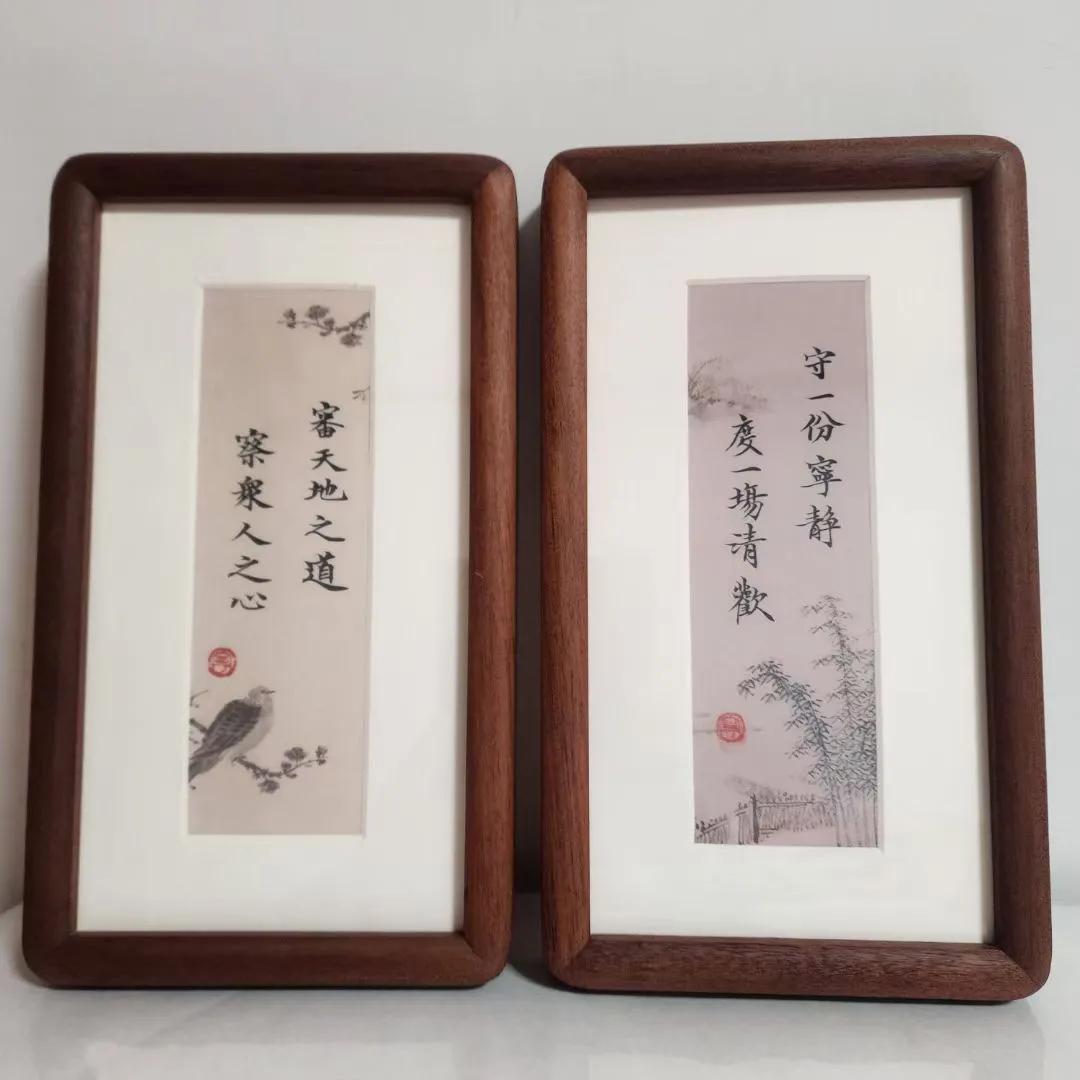 審天地之道
察衆人之心
守一份寧静
度一場清歡